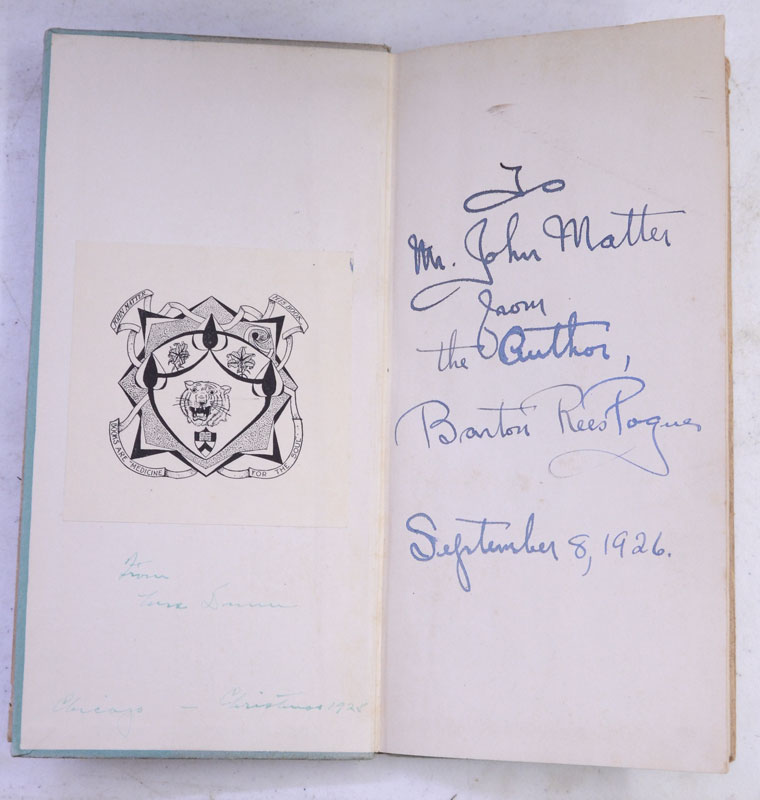 JOHN MATTER
HIS BOOK
BOOKS ARE MEDICINE FOR THE SOUL
From
Chicago — Christmas 1925
To
Mr. John Matter
from
the Author,
Barton Rees Pogue
September 8, 1926.